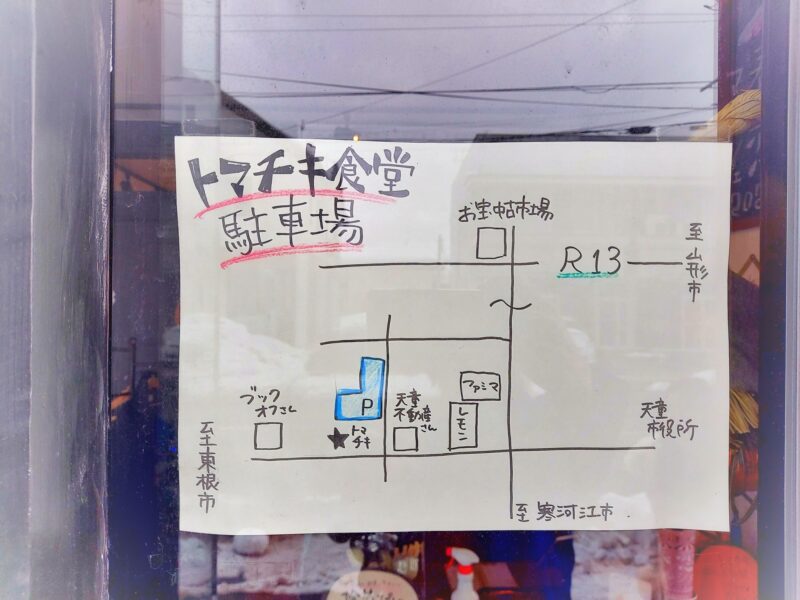 トマチキ食堂
駐車場
お宝中古市場
R13
至山形市
ブック
オフさん
P
ファミマ
天童
不動産
さん
レモン
★トマ
チキ
天童
市役所
至東根市
至 寒河江市